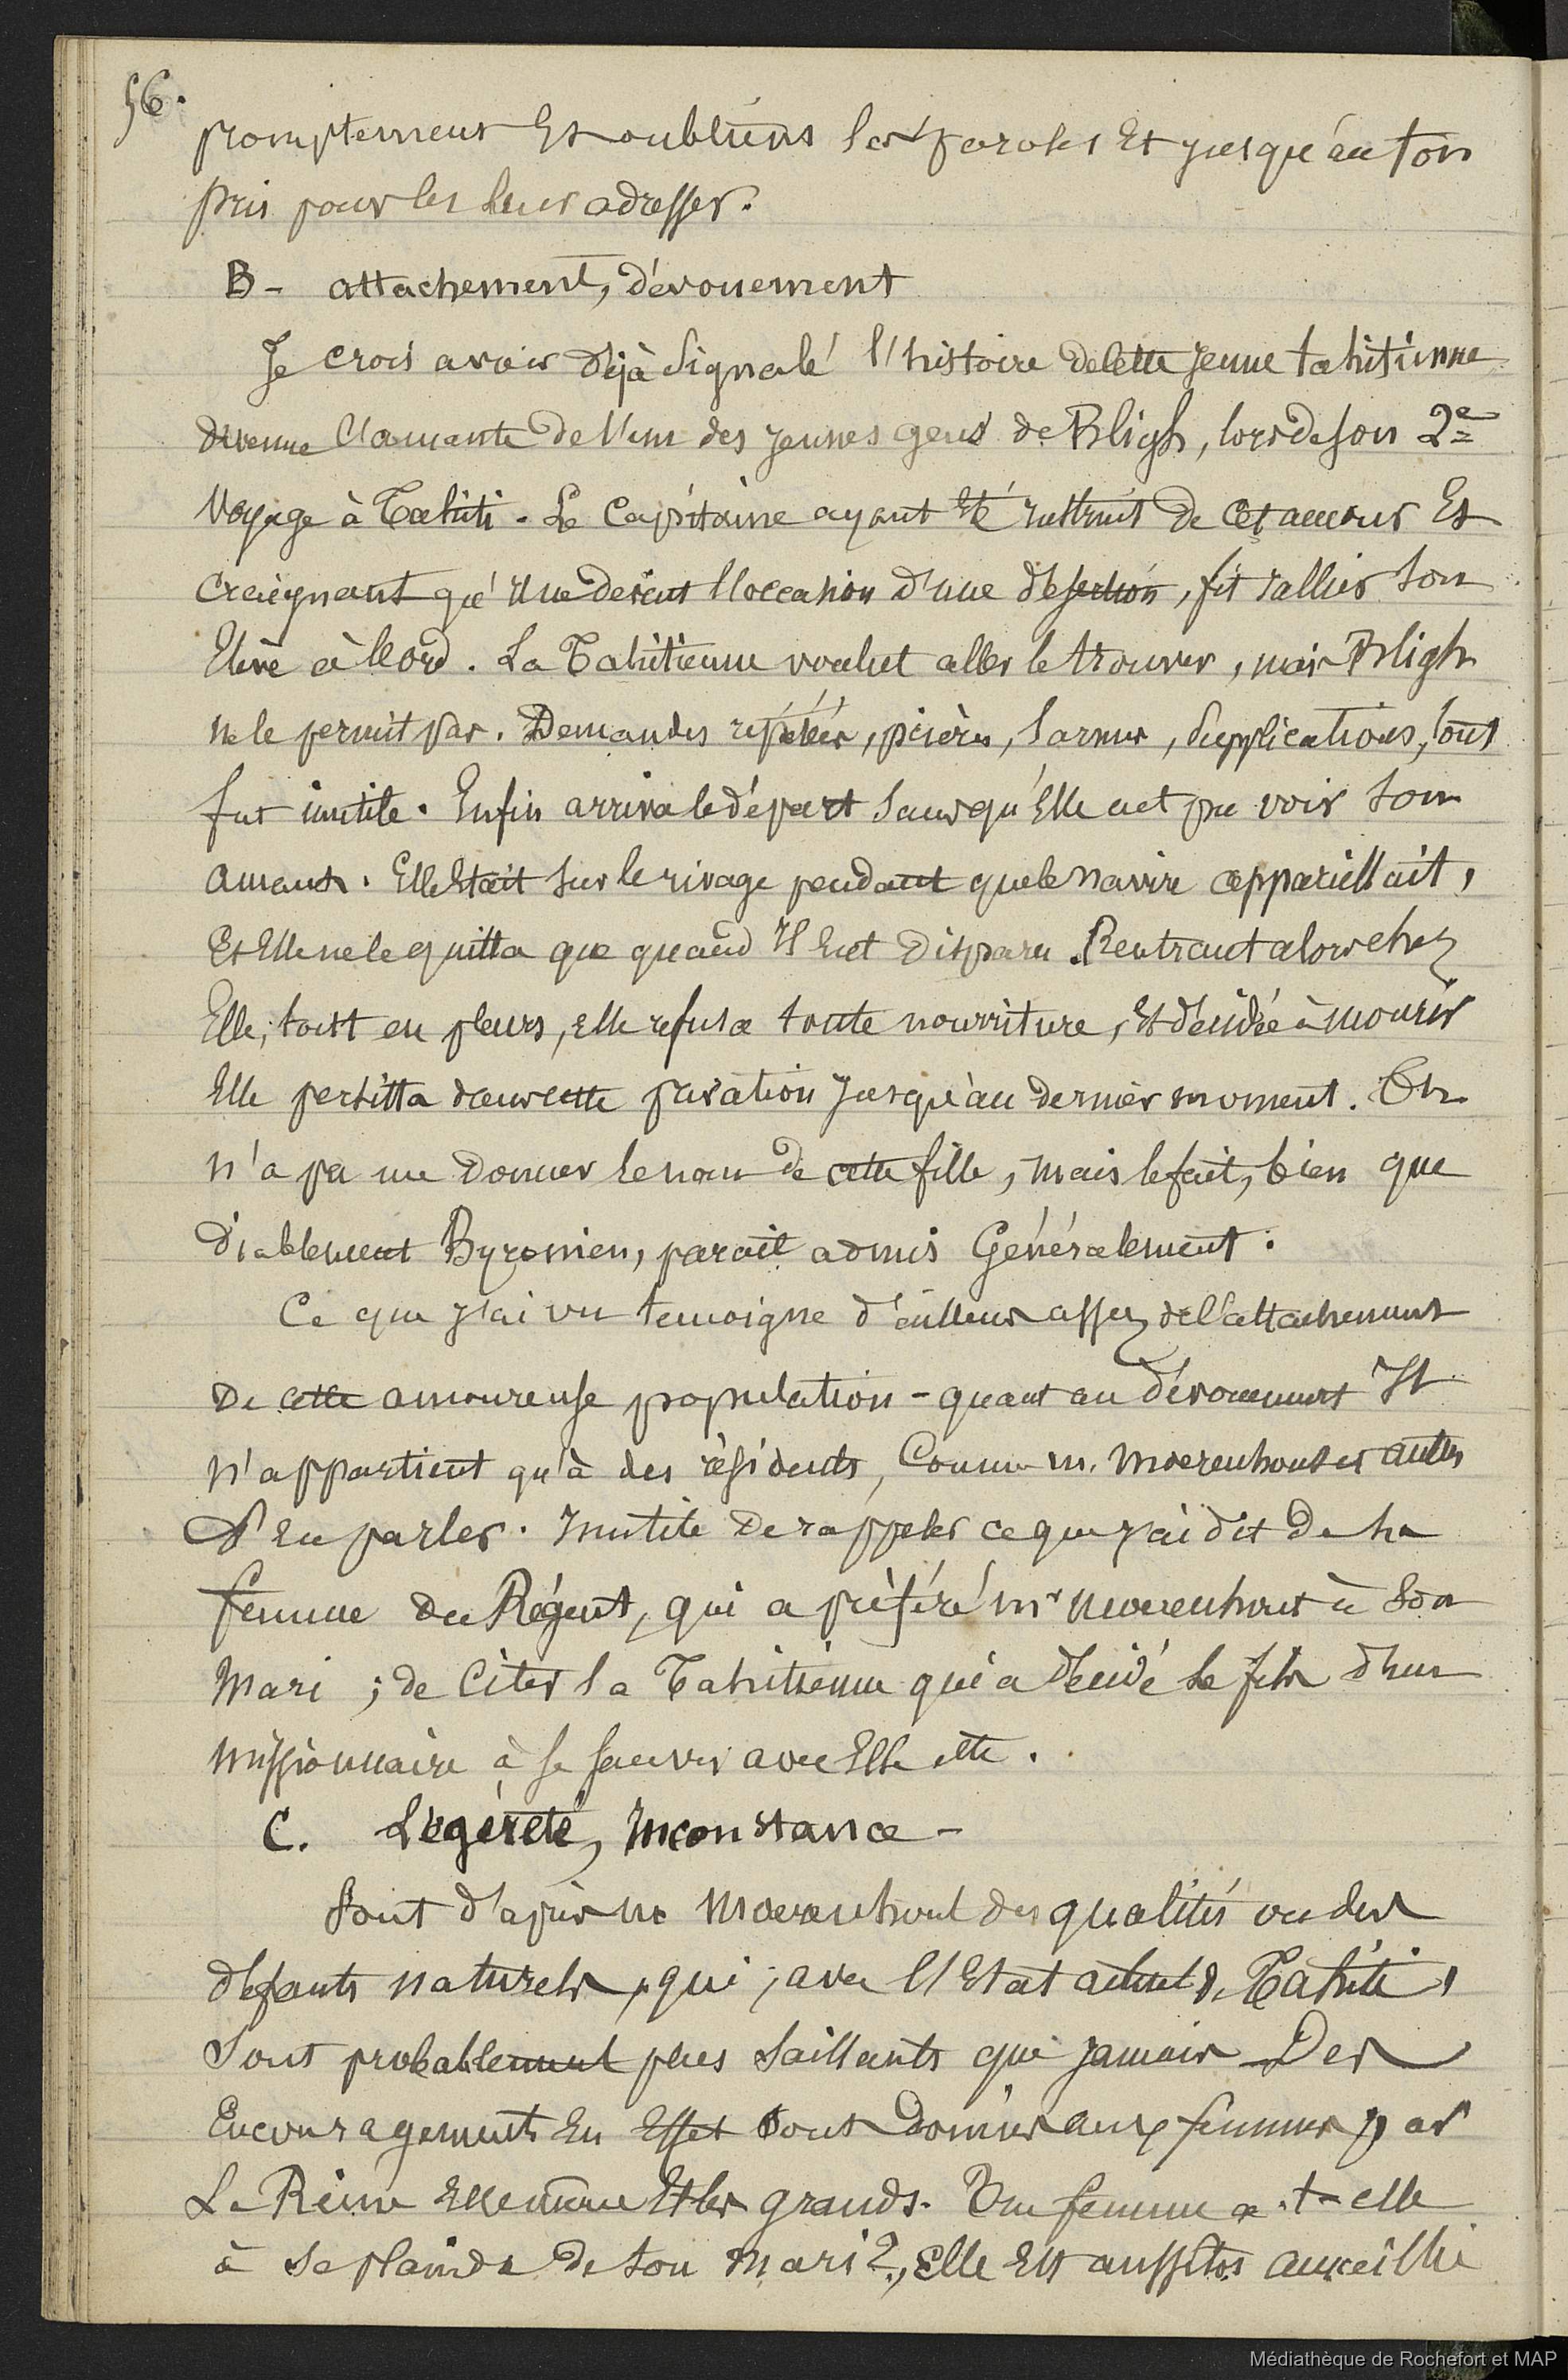 56.
promptement et oublièrens les paroles et jusqu'au ton
pris pour les leur adresser.
B - attachement, dévouement
Je crois avoir déjà signalé l'histoire de cette jeune tahitienne
devenue l'amante de l'un des jeunes gens de Bligh, lors de son 2e
voyage à Tahiti. Le Capitaine ayant été instruit de cet amour et
craignant qu'il ne devint l'occasion d'une désertion, fit rallier son
Elève à bord. La Tahitienne voulut aller le trouver, mais Bligh
ne le permit pas. Demandes répétées, prières, larmes, supplications, tout
fut inutile. Enfin arriva le départ sans qu'Elle eut pu voir son
amant. Elle était sur le rivage pendant que le navire appareillait,
et Elle ne le quitta que quand Il eut disparu. Rentrant alors chez
Elle, tout en pleurs, elle refusa toute nourriture, et décidée à mourir
Elle persista dans cette privation jusqu'au dernier moment. On
n'a pu me donner le nom de cette fille, mais le fait, bien que
diablement Byronien, parait admis Généralement.
Ce que j'ai vu temoigne d'ailleurs assez de l'attachement
de cette amoureuse population - quant au dévouement Il
n'appartient qu'à des résidents, Comme m. Moerenhout et autres
d'en parler. Inutile de rappeler ce que j'ai dit de la
femme du Régent, qui a préféré mr Moerenhout à son
mari ; de citer la Tahitienne qui a décidé le fils d'un
missionnaire à se sauver avec Elle etc.
C. Légèreté, Inconstance -
Sont d'après mr Moerenhout des qualités ou des
défauts naturels, qui, avec l'Etat actuel de Tahiti,
sont probablement plus saillants que jamais - Des
Encouragements En Effet sont donnés aux femmes par
La Reine Elle même et les grands. Une femme a-t-elle
à se plaindre de son mari ?, Elle Est aussitôt accueillie
Médiathèque de Rochefort et MAP